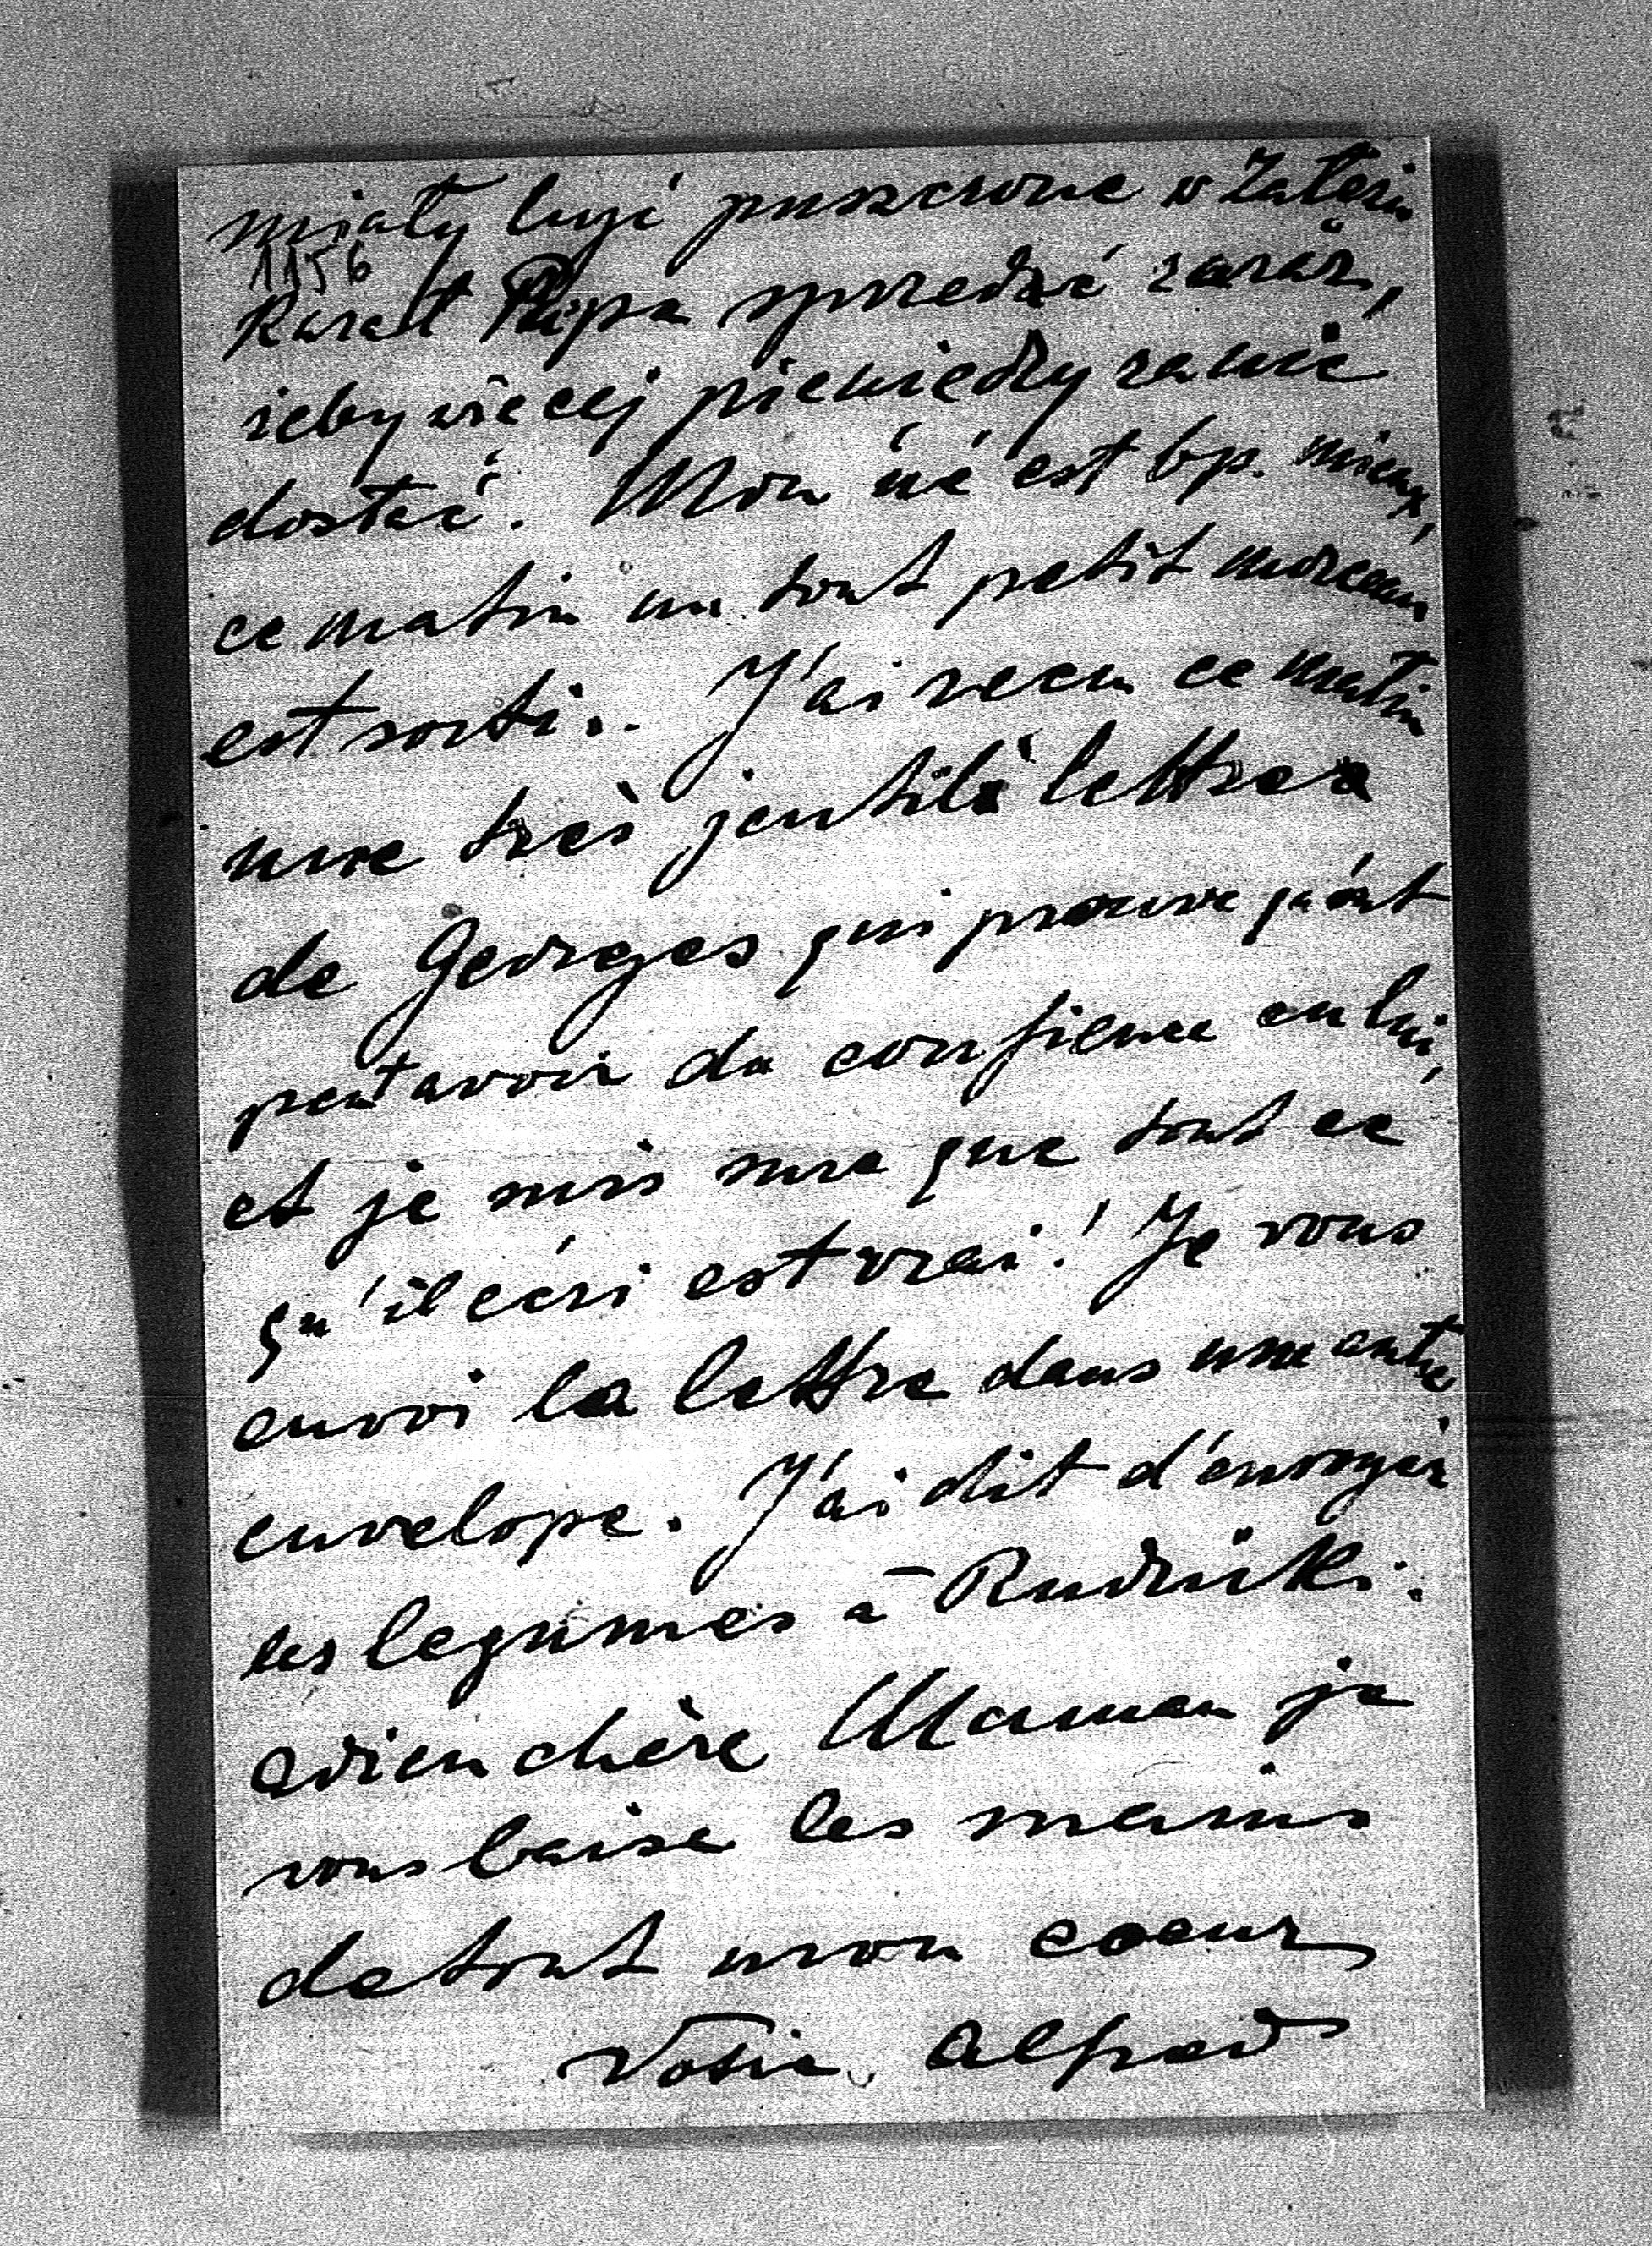 miały być puszczone w Zatoru
1156
Kazał Papa sprzedać zaraz,
żeby więcej pieniedzy za nie
dostać. Mon né est bp. mieux,
ce matin un tout petit morceau
est sorti... J'ai recu ce matin
une très jentile lettre
de Georges qui prouve qu'ont
peut avoir da confience en lui,
et je suis sure que tout ce
qu'il écri est vrai! Je vous
envoi la lettre dans une autre
envelope. J'ai dit d'envoyer
les legumes à Rudniki.
adieu chère Maman je
vous baise les mains
de tout mon coeur
Votre Alfred